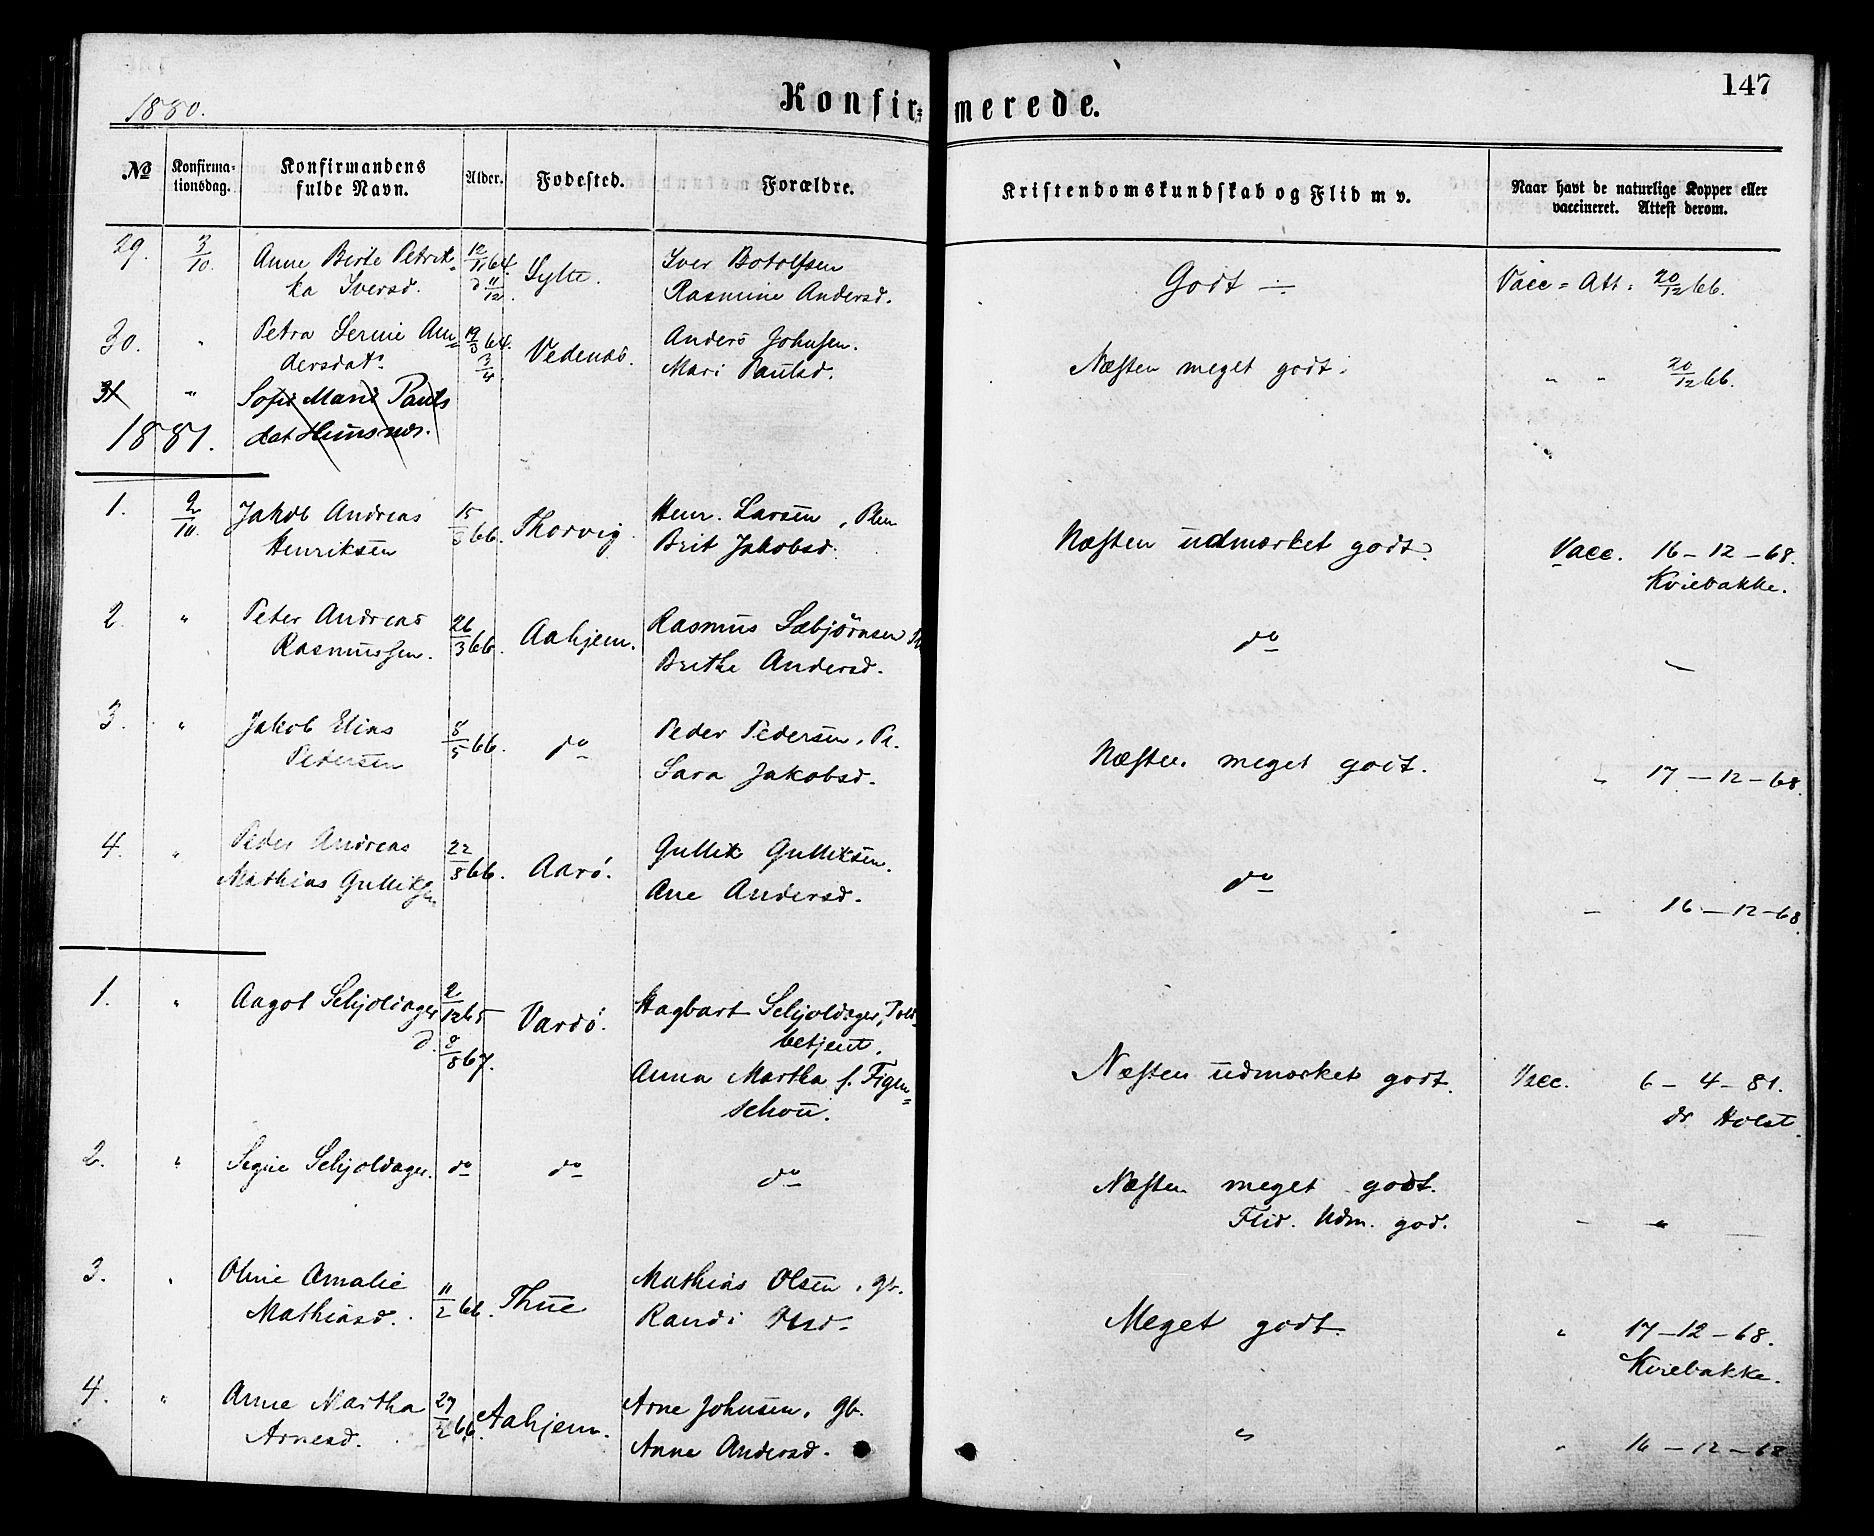 147
1880.
Konfir= merede.
No
Konfirma=
tionsdag.
Konfirmandens
fulde Navn.
Alder.
Fodested.
Forældre.
Kristendomskundskab og Flid m v.
Naar havt de naturlige Kopper eller
vaccineret. Attest derom.
29. 3/10. Anne Berte Petrik= 12/11 64. Sylte. Iver Botolfsen Godt Vacc = Att: 20/12 66.
ka Iversd. d 11/12. Rasmine Andersd.
30. " Petra Serine An= 19/3 64. Vedenæs. Anders Johnsen. Næsten meget godt. " " 20/12 66.
dersdat. 3/4. Mari Paulsd.
31 " Sofie Marie Pauls
dat Humsnæs.
1881.
1. 2/10. Jakob Andreas 15/3 66. Thorvig. Henr. Larsen, Næsten udmærket godt. Vacc. 16-12-68.
Henriksen Brit Jakobsd. Kviebakke.
2. " Peter Andreas 26/3 66. Aahjem. Rasmus Sæbjörnsen do —
Rasmussen. Brithe Andersd.
3. " Jakob Elias 8/5 66. do Peder Pedersen, Pl. Næsten meget godt. " 17-12-68.
Pedersen Sara Jakobsd.
4. " Peder Andreas 22/8 66. Aarö. Gullik Gulliksen. do — 16-12-68.
Mathias Gulliksen Ane Andersd.
1. " Aagot Schjoldager 2/12 65 Vardö. Hagbart Schjoldager, Told=
d. 8/8 67. betjent.
Anna Martha f. Figen= Næsten udmærket godt. Vacc. 6-4-81.
schou. dr Holst.
2. " Signe Schjoldager. do do do Næsten meget godt.
Flid. Udm. god. — " —
3. " Oline Amalie 11/2 66. Thue Mathias Olsen, gb. Meget godt. " 17-12-68.
Mathiasd. Randi Kviebakke.
4. " Anne Martha 27/2 66. Aahjem. Arne Johnsen, gb. " " 16-12-68
Arnesd. Anne Andersd.